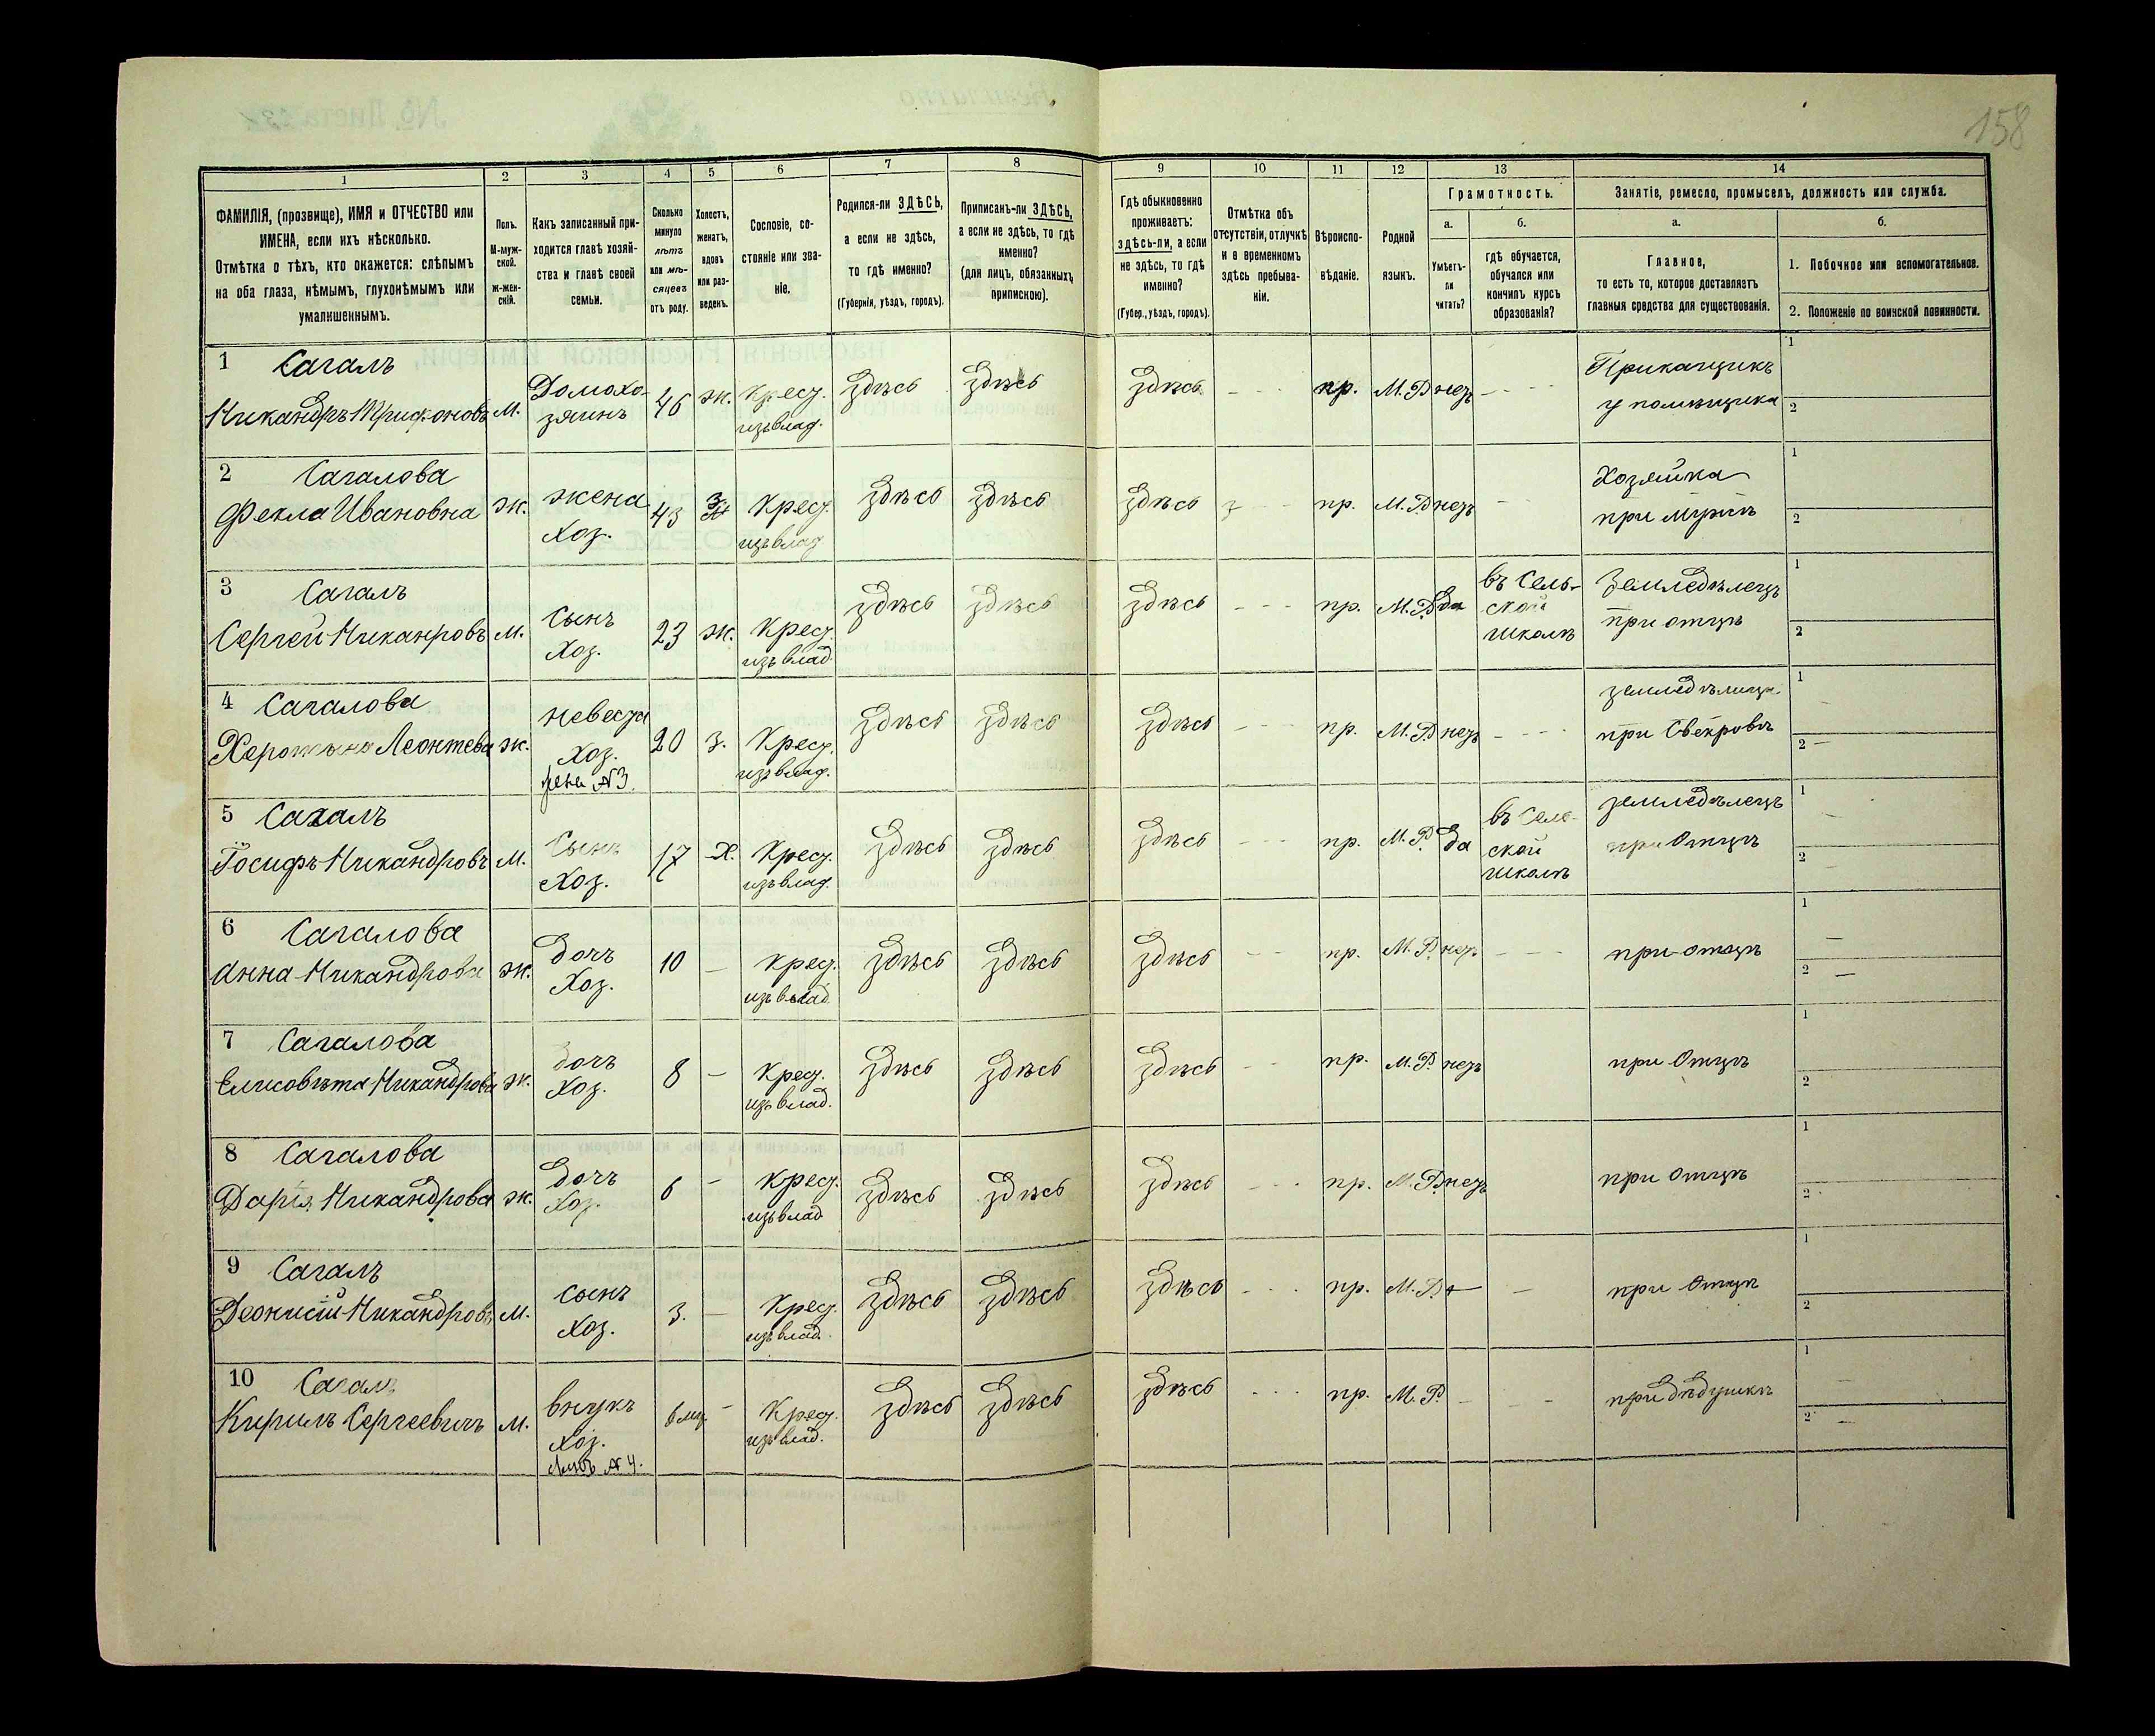 158
1 2 3 4 5 6 7 8 9 10 11 12 13 14
ФАМИЛІЯ, (прозвище), ИМЯ и ОТЧЕСТВО или
ИМЕНА, если ихъ нѣсколько.
Отмѣтка о тѣхъ, кто окажется: слѣпымъ
на оба глаза, нѣмымъ, глухонѣмымъ или
умалишеннымъ.
Полъ.
М-муж-
ской.
Ж-жен-
скій.
Какъ записанный при-
ходится главѣ хозяй-
ства и главѣ своей
семьи.
Сколько
минуло
лѣтъ
или мѣ-
сяцевъ
отъ роду.
Холостъ,
женатъ,
вдовъ
или раз-
веденъ.
Сословіе, со-
стояніе или зва-
ніе.
Родился-ли ЗДѢСЬ,
а если не здѣсь,
то гдѣ именно?
(Губернія, уѣздъ, городъ).
Приписанъ-ли ЗДѢСЬ,
а если не здѣсь, то гдѣ
именно?
(для лицъ, обязанныхъ
припискою).
Гдѣ обыкновенно
проживаетъ:
здѣсь-ли, а если
не здѣсь, то гдѣ
именно?
(Губер., уѣздъ, городъ).
Отмѣтка объ
отсутствіи, отлучкѣ
и в временномъ
здѣсь пребыва-
ніи.
Вѣроиспо-
вѣданіе.
Родной
языкъ.
Грамотность.
а.
Умѣетъ-
ли
читать?
б.
гдѣ обучается,
обучался или
кончилъ курсъ
образованія?
Занятіе, ремесло, промыселъ, должность или служба.
а.
Главное,
то есть то, которое доставляетъ
главныя средства для существованія.
б.
1. Побочное или вспомогательное.
2. Положеніе по воинской повинности.
1 Сагалъ
Никандръ Трифоновъ м. Домохо-
зяинъ 46 ж. Крест.
изъ влад. здѣсь здѣсь здѣсь - - - пр. М.Р. нетъ - - - Приказчикъ
у помѣщика 1
2
2 Сагалова
Фекла Ивановна ж. жена
Хоз. 43 З Крест.
изъ влад здѣсь здѣсь здѣсь пр. М.Р. нетъ - Хозяйка
при мужѣ 1
2
3 Сагалъ
Сергей Никанровъ м. сынъ
Хоз. 23 ж. Крест.
изъ влад. здѣсь здѣсь здѣсь - - - пр. М.Р. да въ Сель-
ской
школѣ Земледѣлецъ
при отцѣ 1
2
4 Сагалова
Леонтева ж. невеста
Хоз.
жена №3. 20 з. Крест.
изъ влад. здѣсь здѣсь здѣсь - - - пр. М.Р. нетъ - - - земледѣлица
при Свекровѣ 1
2 -
5 Сагалъ
Іосифъ Никандровъ м. Сынъ
Хоз. 17 Х. Крест.
изъ влад. здѣсь здѣсь здѣсь - - - пр. М.Р. да въ Селе-
ской
школѣ земледѣлецъ
при Отцѣ 1 -
2 -
6 Сагалова
Анна Никандрова ж. дочъ
Хоз. 10 - Крест.
изъ влад. здѣсь здѣсь здѣсь - - пр. М.Р. нетъ - - - при отцѣ 1 -
2 -
7 Сагалова
Елисовѣта Никандрова ж. дочъ
Хоз. 8 - Крест.
изъ влад. здѣсь здѣсь здѣсь - - пр. М.Р. нетъ при Отцѣ 1
2
8 Сагалова
Дарія Никандрова ж. дочъ
Хоз. 6 - Крест.
изъ влад здѣсь здѣсь здѣсь - - - пр. М.Р. нетъ при Отцѣ 1
2
9 Сагалъ
Деонисій Никандровъ м. сынъ
Хоз. 3. - Крест.
изъ влад. здѣсь здѣсь здѣсь - - - пр. М.Р. - - при Отцѣ 1
2
10 Сагалъ
Кирилъ Сергеевичъ м. внукъ
Хоз.
сынъ №4. 6 мѣс. - Крест.
изъ влад. здѣсь здѣсь здѣсь - - - пр. М.Р - - - при дѣдушкѣ 1 -
2 -